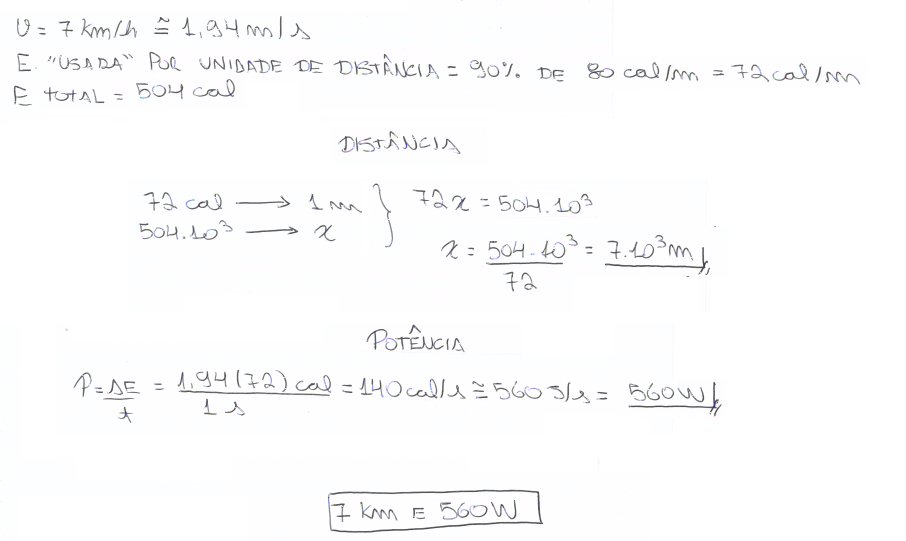 V = 7 km/h ≅ 1,94 m/s
E. "USADA" POR UNIDADE DE DISTÂNCIA = 90% DE 80 cal/m = 72 cal/m
E TOTAL = 504 cal
DISTÂNCIA
72 cal → 1 m } 72x = 504.10³
504.10³ → x
x = 504.10³ = 7.10³ m
72
POTÊNCIA
P = ΔE = 1,94 (72) cal = 140 cal/s ≅ 560 J/s = 560 W
t 1 s
7 km E 560 W